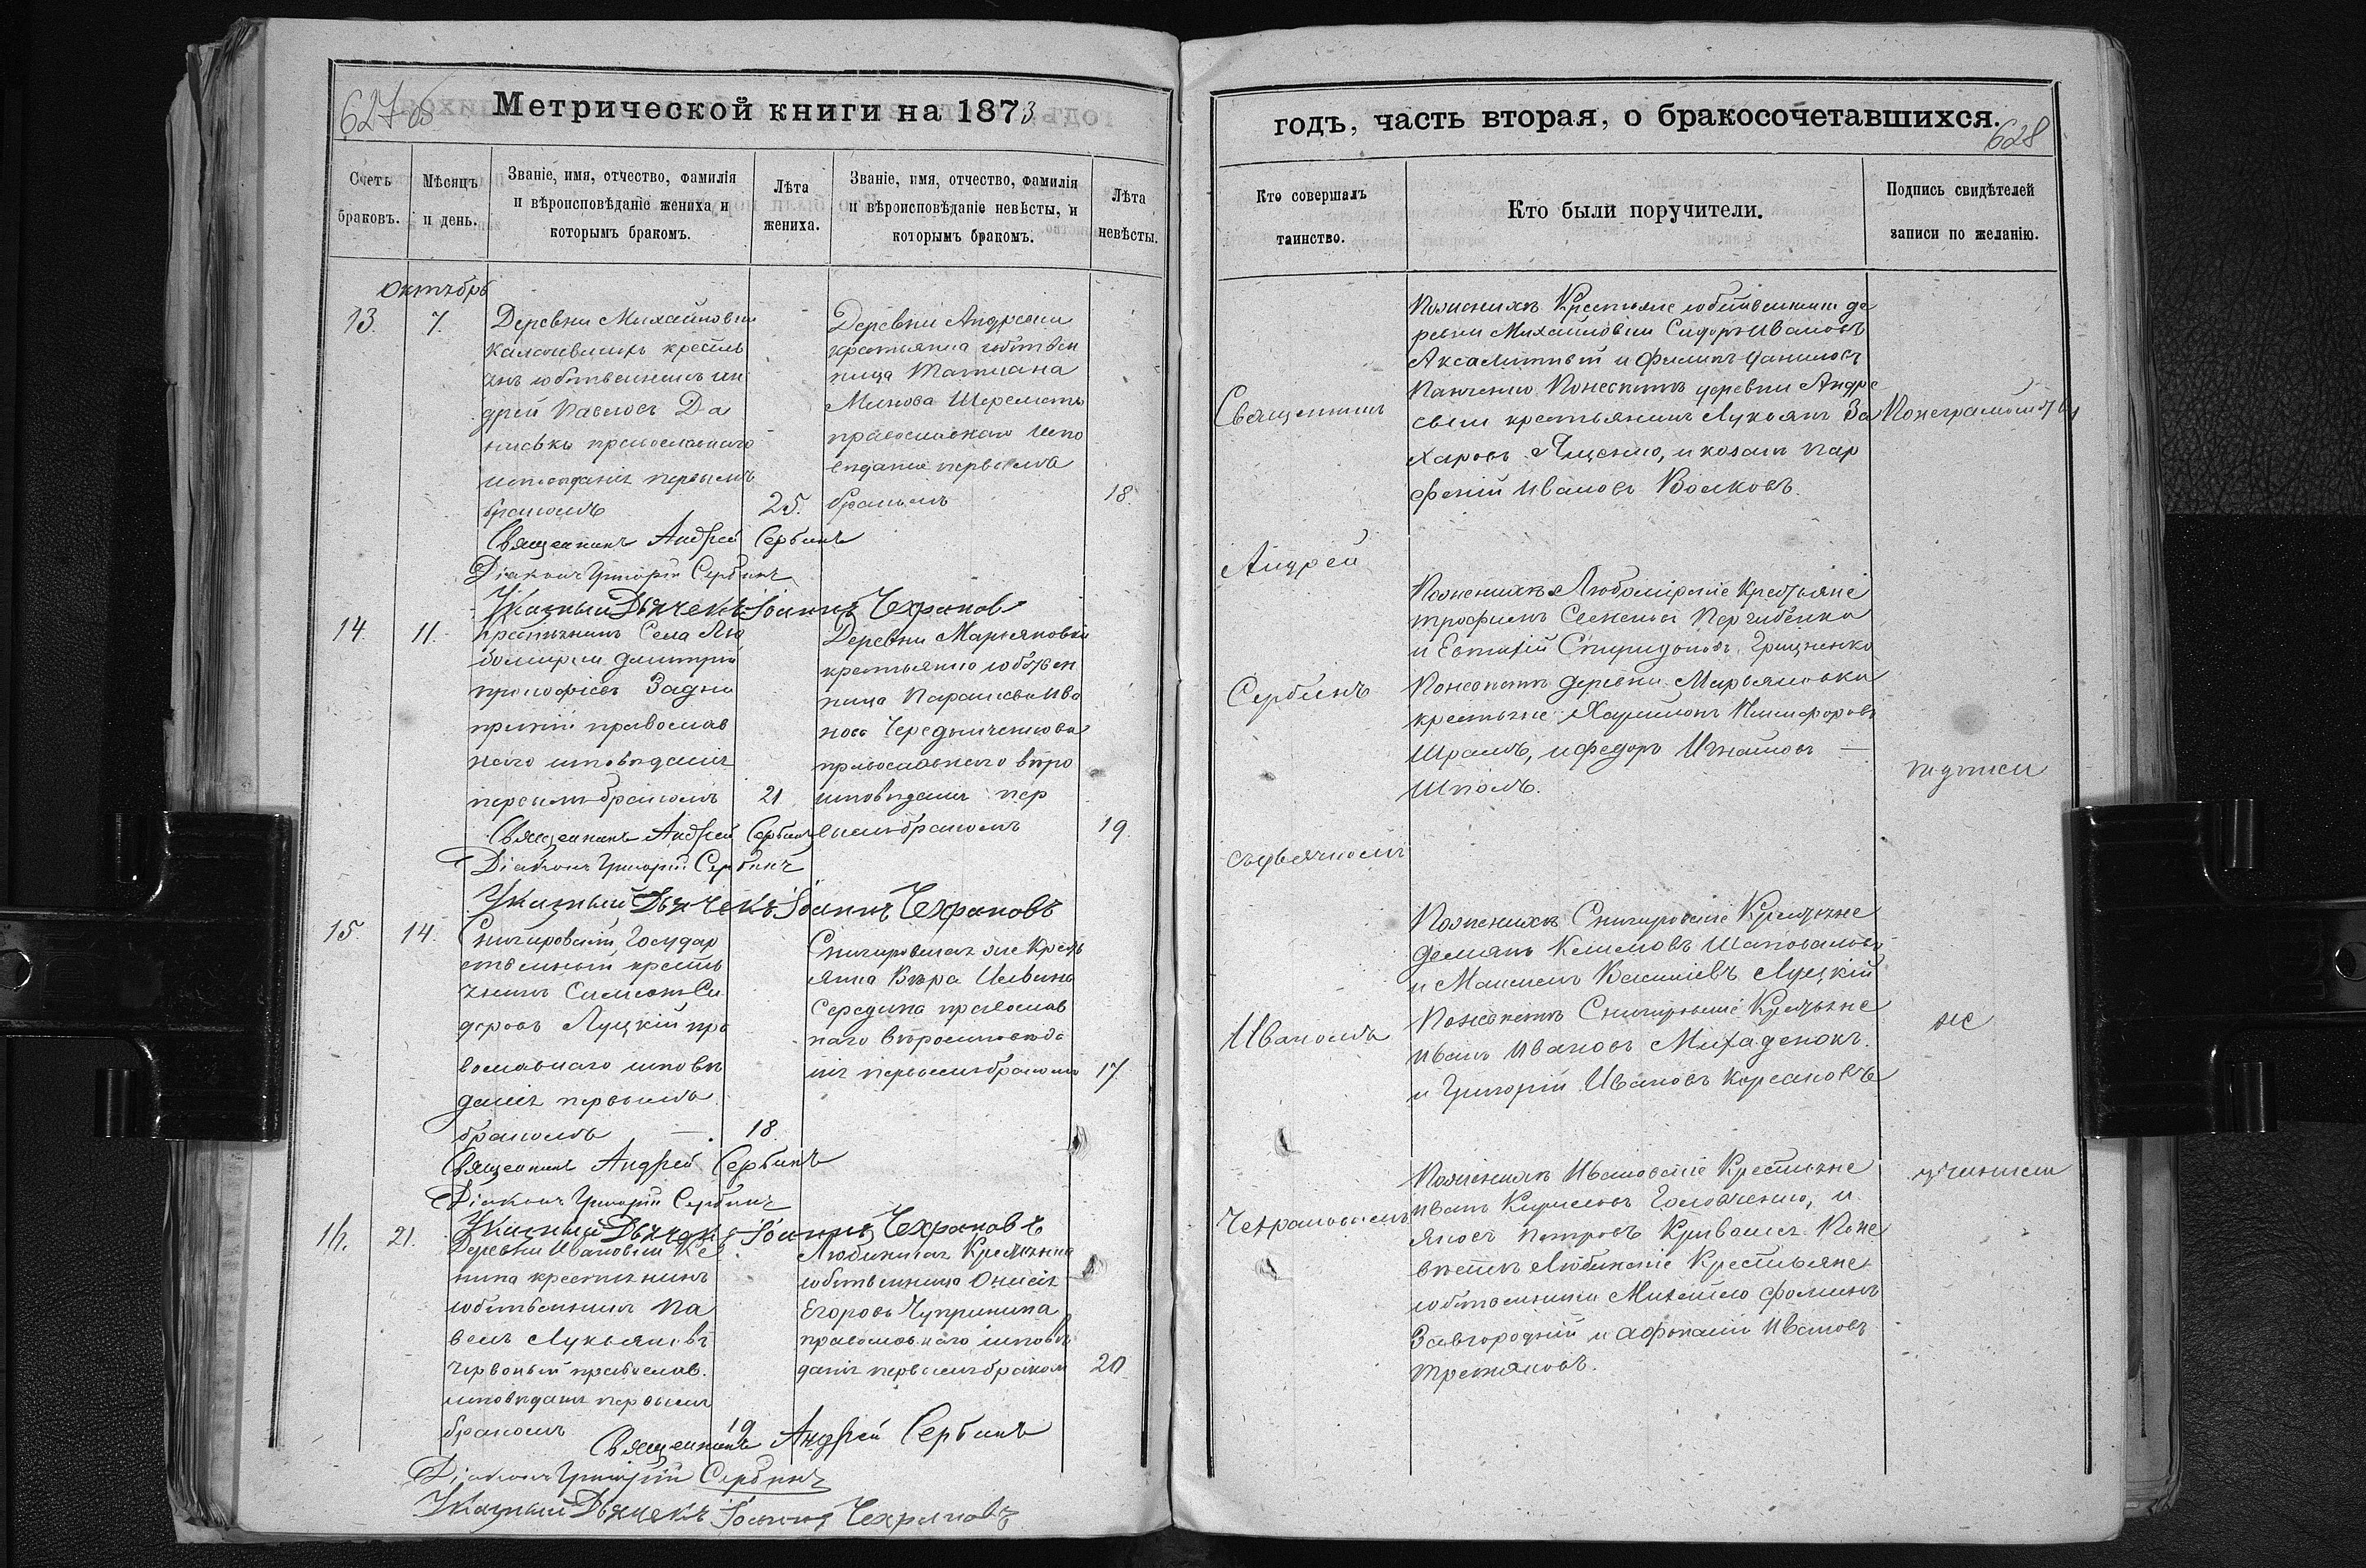 627 об
Метрической книги на 1873
Счетъ браковъ.
Мѣсяцъ и день.
Званіе, имя, отчество, фамилія и вѣроисповѣданіе жениха и которымъ бракомъ.
Лѣта жениха.
Званіе, имя, отчество, фамилія и вѣроисповѣданіе невѣсты, и которымъ бракомъ.
Лѣта невѣсты.
Октябрь
13.
7.
Деревни Михайловки
крестья
анъ собственникъ Ан
дрей Павловъ Да
нисько православнаго
исповѣданія первымъ
бракомъ
25.
Деревни Андреевки
крестьянка собствен
ница Татиана
Шереметъ
православнаго испо
вѣданія первымъ
бракомъ
18.
Священникъ Андрей Сербинъ
Діаконъ Григорій Сербинъ
Указный Дьячекъ Іоаннъ Чехрановъ
14.
11.
Крестьянинъ Села Лю
бомирки Димитрій
Прокофіевъ Задне
пряный православ
наго исповѣданія
первымъ бракомъ
21
Деревни Марьяновки
крестьянка собствен
ница Параскева Ива
нова Чередниченкова
православнаго вѣро
исповѣданія пер
вымъ бракомъ
19.
Священникъ Андрей Сербинъ
Діаконъ Григорій Сербинъ
Указный Дьячекъ Іоаннъ Чехрановъ
15.
14.
Снигировскій Государ
ственный кресть
янинъ Симеонъ Си
доровъ Луцкій пра
вославнаго исповѣ
данія первымъ
бракомъ
18.
Снигировская же Кресть
янка Вѣра
Середина православ
наго вѣроисповѣда
нія первымъ бракомъ
17.
Священникъ Андрей Сербинъ
Діаконъ Григорій Сербинъ
Указный Дьячекъ Іоаннъ Чехрановъ
16.
21.
Деревни Ивановки Ке
пина крестьянинъ
собственникъ Па
велъ Лукьяновъ
Червоный православ.
исповѣданія первымъ
бракомъ
19
Крестьянка
собственница Онисія
Егорова Чупринина
православнаго исповѣ
данія первымъ бракомъ
20
Священникъ Андрей Сербинъ
Діаконъ Григорій Сербинъ
Указный Дьячекъ Іоаннъ Чехрановъ
годъ, часть вторая, о бракосочетавшихся.
628
Кто совершалъ таинство.
Кто были поручители.
Подпись свидѣтелей записи по желанію.
Священникъ
Андрей
Сербинъ
съ дьячкомъ
Иваномъ
Чехрановымъ
По женихѣ Крестьяне собственники де
ревни Михайловки Сидоръ Ивановъ
Аксамитный и Филипъ Даниловъ
Панченко По невѣстѣ деревни Андре
евки крестьянинъ Лукьянъ За
харовъ Яценко, и козакъ Пар
феній Ивановъ Волковъ.
По женихѣ Любомірскіе Крестьяне
Трофимъ Семеновъ
и Евтихій Спиридоновъ Грищненко
По невѣстѣ деревни Марьяновки
крестьяне Харитонъ Никифоровъ
Шрамъ, и Федоръ Игнатовъ
Шполъ.
По женихѣ Снигировскіе Крестьяне
Демянъ Климовъ Шаповаловъ
и Максимъ Василіевъ Луцкій
По невѣстѣ Снигировскіе Крестьяне
Иванъ Ивановъ Михаденокъ.
и Григорій Ивановъ Корсановъ
По женихѣ Ивановскіе Крестьяне
Иванъ Кириловъ Головченко, и
Яковъ Петровъ По не
вѣстѣ Крестьяне
собственники Михайло Фоминъ
Завгородній и Афонасій Ивановъ
Третяковъ.
По неграмотству
подписи
не
учинили